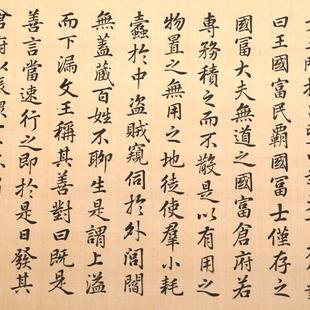 曰王國富民霸國富士僅存之
國富大夫無道之國富倉府若
專務積之而不散是以有用之
物置之無用之地徒使羣小耗
蠹於中盜賊窺伺於外閭閻
無蓋藏百姓不聊生是謂上溢
而下漏文王稱其善對曰既是
善言當速行之即於是日發其
倉府以